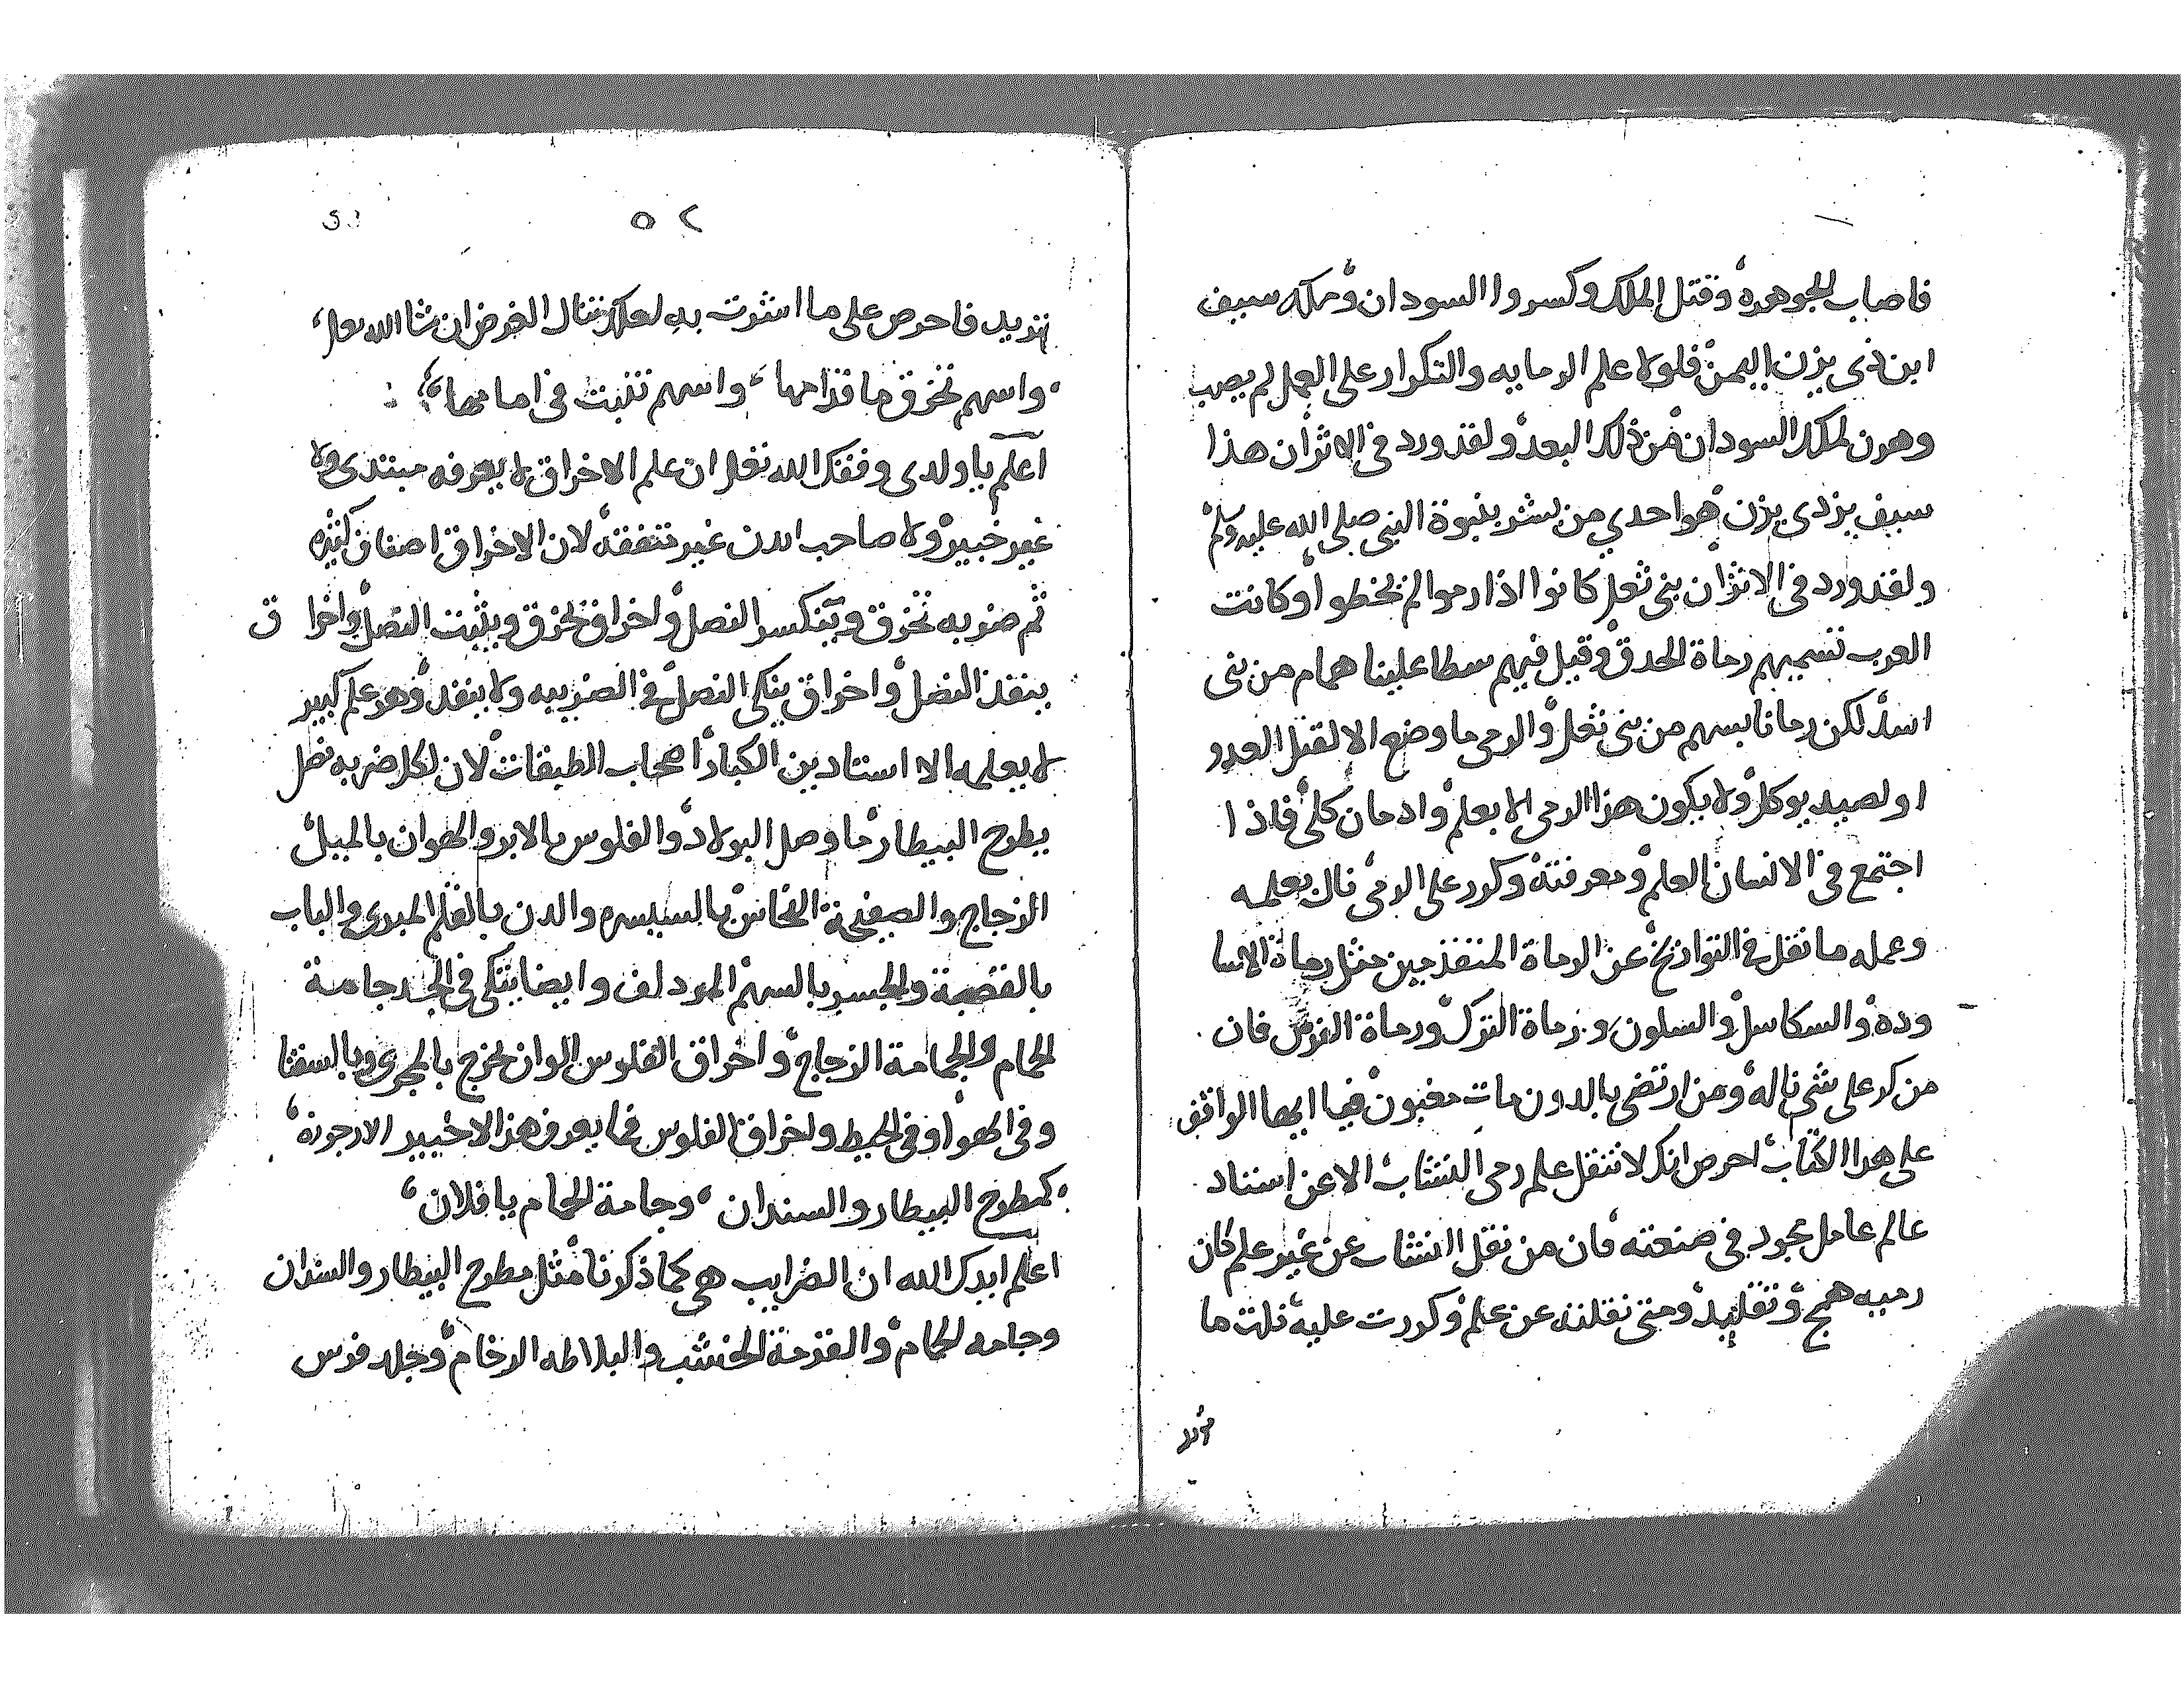 فاصاب الجوهره وقتل الملك وكسروا السودان وملكه سيف
ابن ذى يزن اليمن فلولا علم الرمايه والتكرار على العمل لم يصب
وهرز لملك السودان من ذلك البعد ولقد ورد فى الاثر ان هذا
سيف بن ذى يزن هو احدى من بشر بنبوة النبى صلى الله عليه وسلم
ولقد ورد فى الاثر ان بنى ثعل كانوا اذا رموا لم يخطوا وكانت
العرب تسميهم رماة الحدق وقيل فيهم سطا علينا همام من بنى
اسد لكن رمانا بسهم من بنى ثعل والرمى ما وضع الا لقتل العدو
او لصيد يوكل ولا يكون هذا الرمى الا بعلم وادمان كلى فاذا
اجتمع فى الانسان العلم ومعرفته وكرر على الرمى نال بعلمه
وعمله ما نقل فى التواريخ عن الرماة المتقدمين مثل رماة الاسا
وده والسكاسل والسلون ورماة الترك ورماة الفرس فان
من كر على شى ناله ومن ارتضى بالدون مات مغبون فيا ايها الواقف
على هذا الكتاب احرص انك لا تنقل علم رمى النشاب الا عن استاد
عالم عامل مجود فى صنعته فان من نقل النشاب عن غير علم كان
رميه همج وتقليد ومتى نقلته عن علم وكررت عليه نلت ما
تريد
٥٢
53
تريد فاحرص على ما اشرت به لعلك تنال الغرض ان شا الله تعالى
واسهم تخرق ما قدامها واسهم تثبت فى امامها
اعلم يا ولدى وفقك الله تعلى ان علم الاخراق لا يعرفه مبتدى ولا
غير خبير ولا صاحب ادمن غير تفقه لان الاخراق اصناف كثيره
ثم ضربه تخرق ويتكسر النصل واخراق تخرق ويثبت النصل واخراق
ينفذ النصل واخراق ينكى النصل فى الضريبه ولا ينفذ وهو علم كبير
لا يعلمه الا استادين الكبار اصحاب الطبقات لان لكل ضربه نصل
يطرح البيطار ما وصل البولاد والفلوس بالابر والهوان بالميل
الزجاج والصفيحة النحاس بالسيسره والدن بالقلم المبرى والباب
بالقضيبة والجسر بالسهم المردلف وايضا ينكى فى الجلد جامة
الحام والجامة الزجاج واخراق الفلوس الوان تخرج بالمجرى وبالسفتا
وفى الهوا وفى الحيط واخراق الفلوس فما يعرف هذا الا خبير الارجوزة
كمطرح البيطار والسندان وجامة الحام يا فلان
اعلم ايدك الله ان الضرايب هى كما ذكرنا مثل مطرح البيطار والسندان
وجامه الحام والقرمة الخشب والبلاطه الرخام وجلد فرس